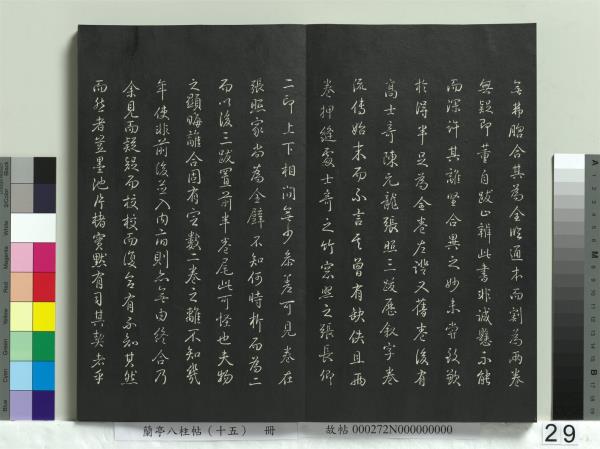 無弗脗合其為全時通本而割為兩卷
無疑即董自跋亦辨此書非誠懸不能
而深許其離堅合異之妙未嘗致歎
於得半且為全卷左證又舊卷後有
高士奇陳元龍張照三跋歷叙字卷
流傳始末而不言其曾有缺佚且兩
卷押縫處士奇之竹窗照之張長卿
二印上下相間無少參差可見卷在
張照家尚為全璧不知何時析而為二
而以後三跋置前半卷尾此可怪也夫物
之顯晦離合固有定數二卷之離不知幾
年使非前後並入內府則亦無由終合乃
余見而疑疑而校校而復合有不知其然
而然者豈墨池片楮實默有司其契者乎
蘭亭八柱帖（十五） 冊
故帖 000272N000000000
29